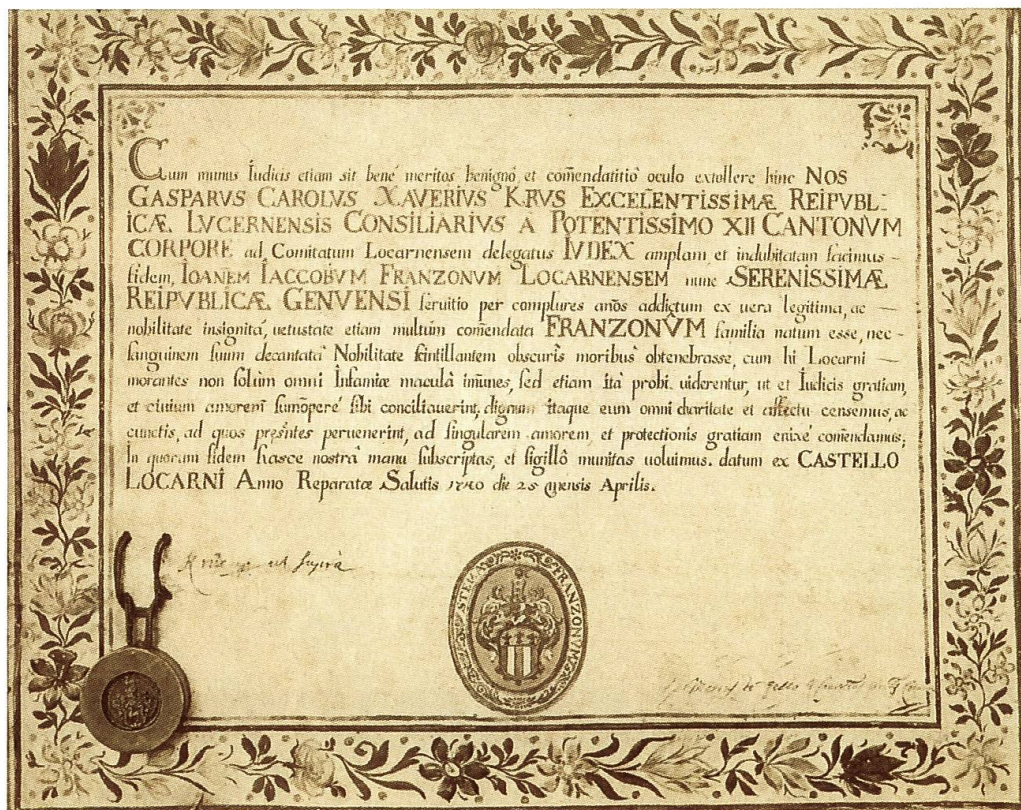 Cum munus Iudicis etiam sit bené meritos benignó, et com̃endatitió oculo extollere hinc NOS
GASPARVS CAROLVS XAVERIVS KRVS EXCELENTISSIMÆ REIPVBL-
ICÆ LVCERNENSIS CONSILIARIVS A POTENTISSIMO XII CANTONVM
CORPORE ad Comitatum Locarnensem delegatus IVDEX amplam et indubitatam facimus
fidem, IOANEM IACCOBVM FRANZONVM LOCARNENSEM nunc SERENISSIMÆ
REIPVBLICÆ GENVENSI seruitio per complures años addictum ex uera legitima, ac —
nobilitate insignitá, uetustate etiam multum com̃endata FRANZONVM familia natum esse, nec-
sanguinem suum decantatá Nobilitate scintillantem obscuris moribus obtenebrasse, cum hi Locarni —
morantes non solùm omni Infamiæ maculâ im̃unes, sed etiam ità probi uiderentur, ut et Iudicis gratiam,
et ciuium amorem sum̃operé sibi conciliauerint, dignum itaque eum omni charitate et affectu censemus, ac
cunctis, ad quos pręsñtes peruenerint, ad singularem amorem et protectionis gratiam enixé com̃endamus;
In quorum fidem hasce nostrá manu subscriptas, et sigillô munitas uoluimus. datum ex CASTELLO
LOCARNI Anno Reparatæ Salutis 1740 die 25 mensis Aprilis.
ut supra
STEMA FRANZONVM